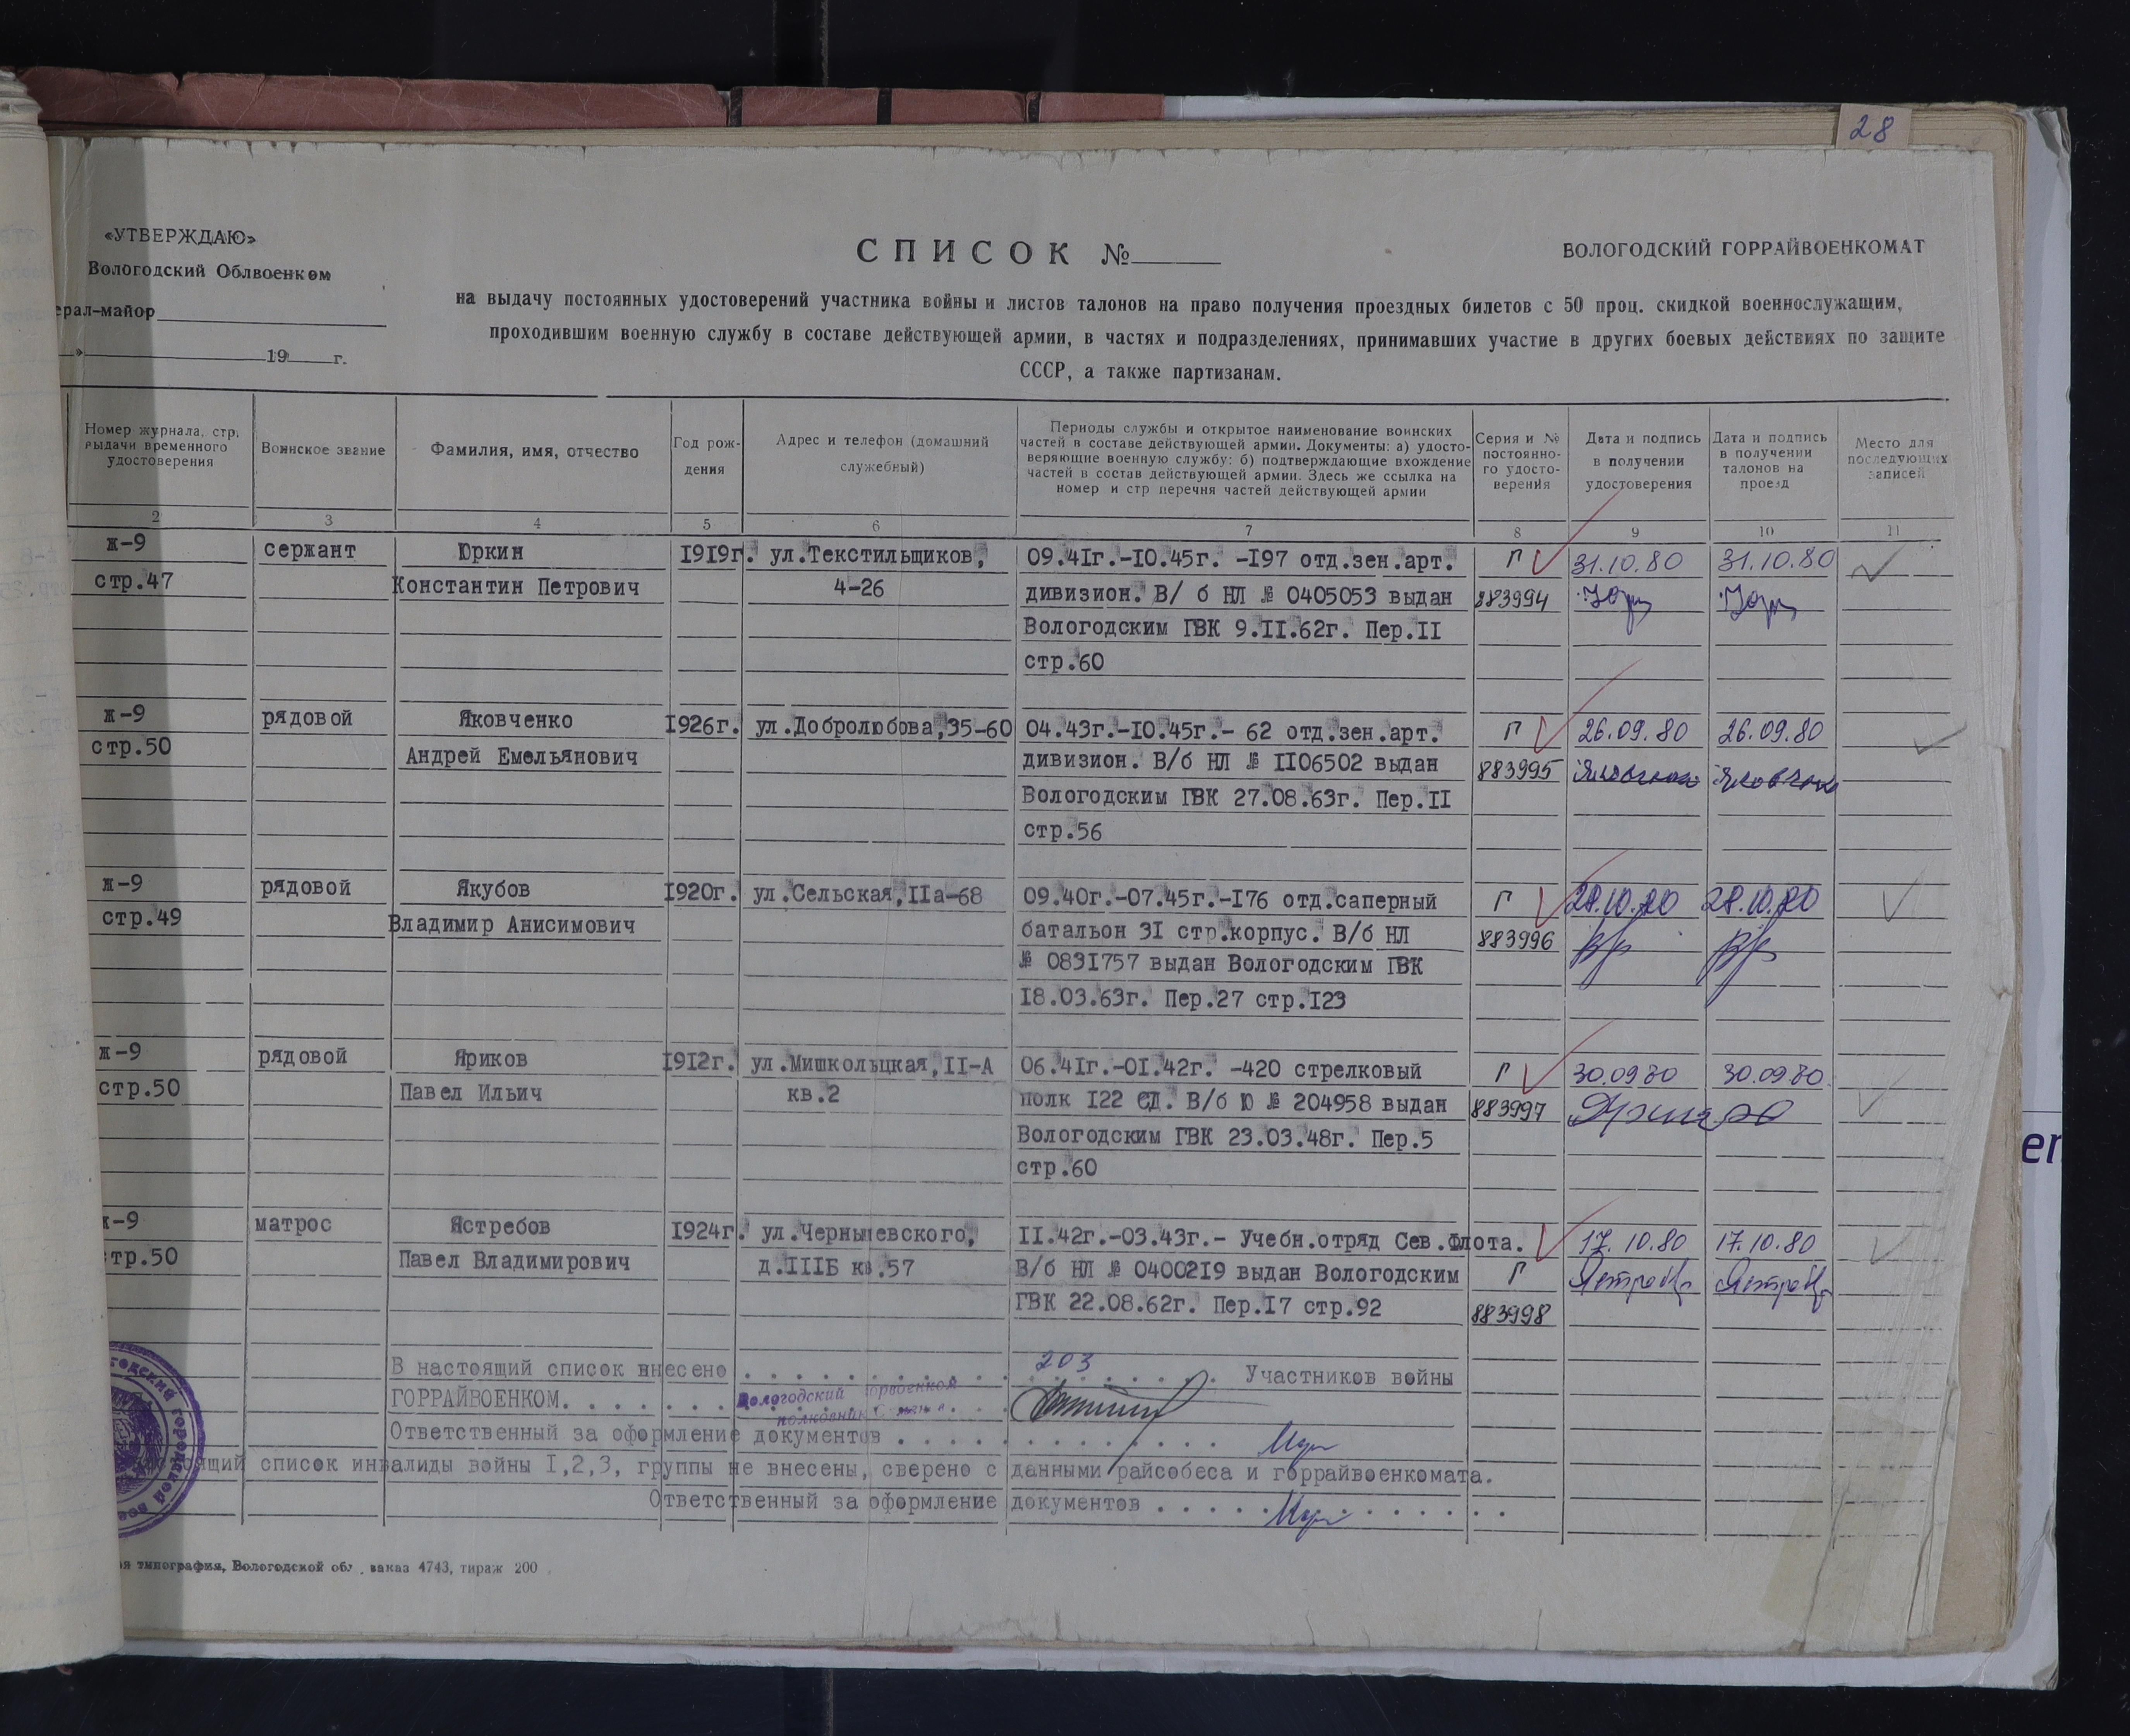 28
«УТВЕРЖДАЮ»
Вологодский Облвоенком
ерал-майор
» 19 г.
СПИСОК №
ВОЛОГОДСКИЙ ГОРРАЙВОЕНКОМАТ
на выдачу постоянных удостоверений участника войны и листов талонов на право получения проездных билетов с 50 проц. скидкой военнослужащим,
проходившим военную службу в составе действующей армии, в частях и подразделениях, принимавших участие в других боевых действиях по защите
СССР, а также партизанам.
Номер журнала, стр.
выдачи временного
удостоверения
Воинское звание
Фамилия, имя, отчество
Год рож-
дения
Адрес и телефон (домашний
служебный)
Периоды службы и открытое наименование воинских
частей в составе действующей армии. Документы: а) удосто-
веряющие военную службу: б) подтверждающие вхождение
частей в состав действующей армии. Здесь же ссылка на
номер и стр перечня частей действующей армии
Серия и №
постоянно-
го удосто-
верения
Дата и подпись
в получении
удостоверения
Дата и подпись
в получении
талонов на
проезд
Место для
последующих
записей
2 3 4 5 6 7 8 9 10 11
ж-9 сержант Юркин 1919г. ул.Текстильщиков, 09.41г.-10.45г. -197 отд.зен.арт. Г 31.10.80 31.10.80
стр.47 Константин Петрович 4-26 дивизион. В/ б НЛ № 0405053 выдан 883994
Вологодским ГВК 9.II.62г. Пер.II
стр.60
ж-9 рядовой Яковченко 1926г. ул.Добролюбова,35-60 04.43г.-10.45г.- 62 отд.зен.арт. Г 26.09.80 26.09.80
стр.50 Андрей Емельянович дивизион. В/б НЛ № II06502 выдан 883995
Вологодским ГВК 27.08.63г. Пер.II
стр.56
ж-9 рядовой Якубов 1920г. ул.Сельская,IIа-68 09.40г.-07.45г.-176 отд.саперный Г 28.10.80 28.10.80
стр.49 Владимир Анисимович батальон 31 стр.корпус. В/б НЛ 883996
№ 0831757 выдан Вологодским ГВК
18.03.63г. Пер.27 стр.123
ж-9 рядовой Яриков 1912г. ул.Мишкольцкая,II-А 06.41г.-01.42г. -420 стрелковый Г 30.09.80 30.09.80
стр.50 Павел Ильич кв.2 полк 122 СД. В/б Ю № 204958 выдан 883997
Вологодским ГВК 23.03.48г. Пер.5
стр.60
ж-9 матрос Ястребов 1924г. ул.Чернышевского, II.42г.-03.43г.- Учебн.отряд Сев.Флота. 17.10.80 17.10.80
стр.50 Павел Владимирович д.IIIБ кв.57 В/б НЛ № 0400219 выдан Вологодским Г
ГВК 22.08.62г. Пер.17 стр.92 883998
В настоящий список внесено . . . . . . . . . 203 . . . . Участников войны
ГОРРАЙВОЕНКОМ. . . . . . . Вологодский горвоенком
полковник
Ответственный за оформление документов . . . . . . . . . . . .
стоящий список инвалиды войны 1,2,3, группы не внесены, сверено с данными райсобеса и горрайвоенкомата.
Ответственный за оформление документов . . . . . . . . . . . .
я типография, Вологодской обл. заказ 4743, тираж 200